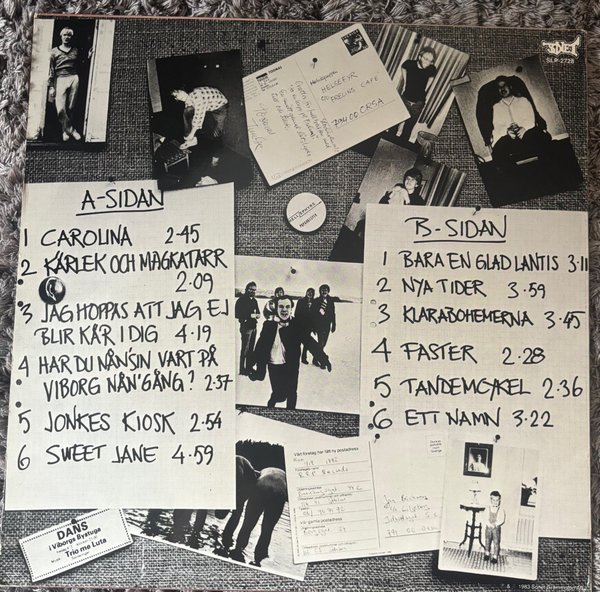 SONET
SLP-2728
HELSEFYR
DEELINS CAFÉ
794 00 ORSA
A-SIDAN
1 CAROLINA 2-45
2 KÄRLEK OCH MAGKATARR
2-09
3 JAG HOPPAS ATT JAG EJ
BLIR KÄR I DIG 4-19
4 HAR DU NÅNSIN VART PÅ
VIBORG NÅN'GÅNG? 2-37
5 JONKES KIOSK 2-54
6 SWEET JANE 4-59
B-SIDAN
1 BARA EN GLAD LANTIS 3-11
2 NYA TIDER 3-59
3 KLARABOHEMERNA 3-45
4 FASTER 2-28
5 TANDEMCYKEL 2-36
6 ETT NAMN 3-22
Vårt företag har fått ny postadress
Vår gamla postadress
DANS
i Viborgs Bystuga
Trio me Luta
1983 Sonet